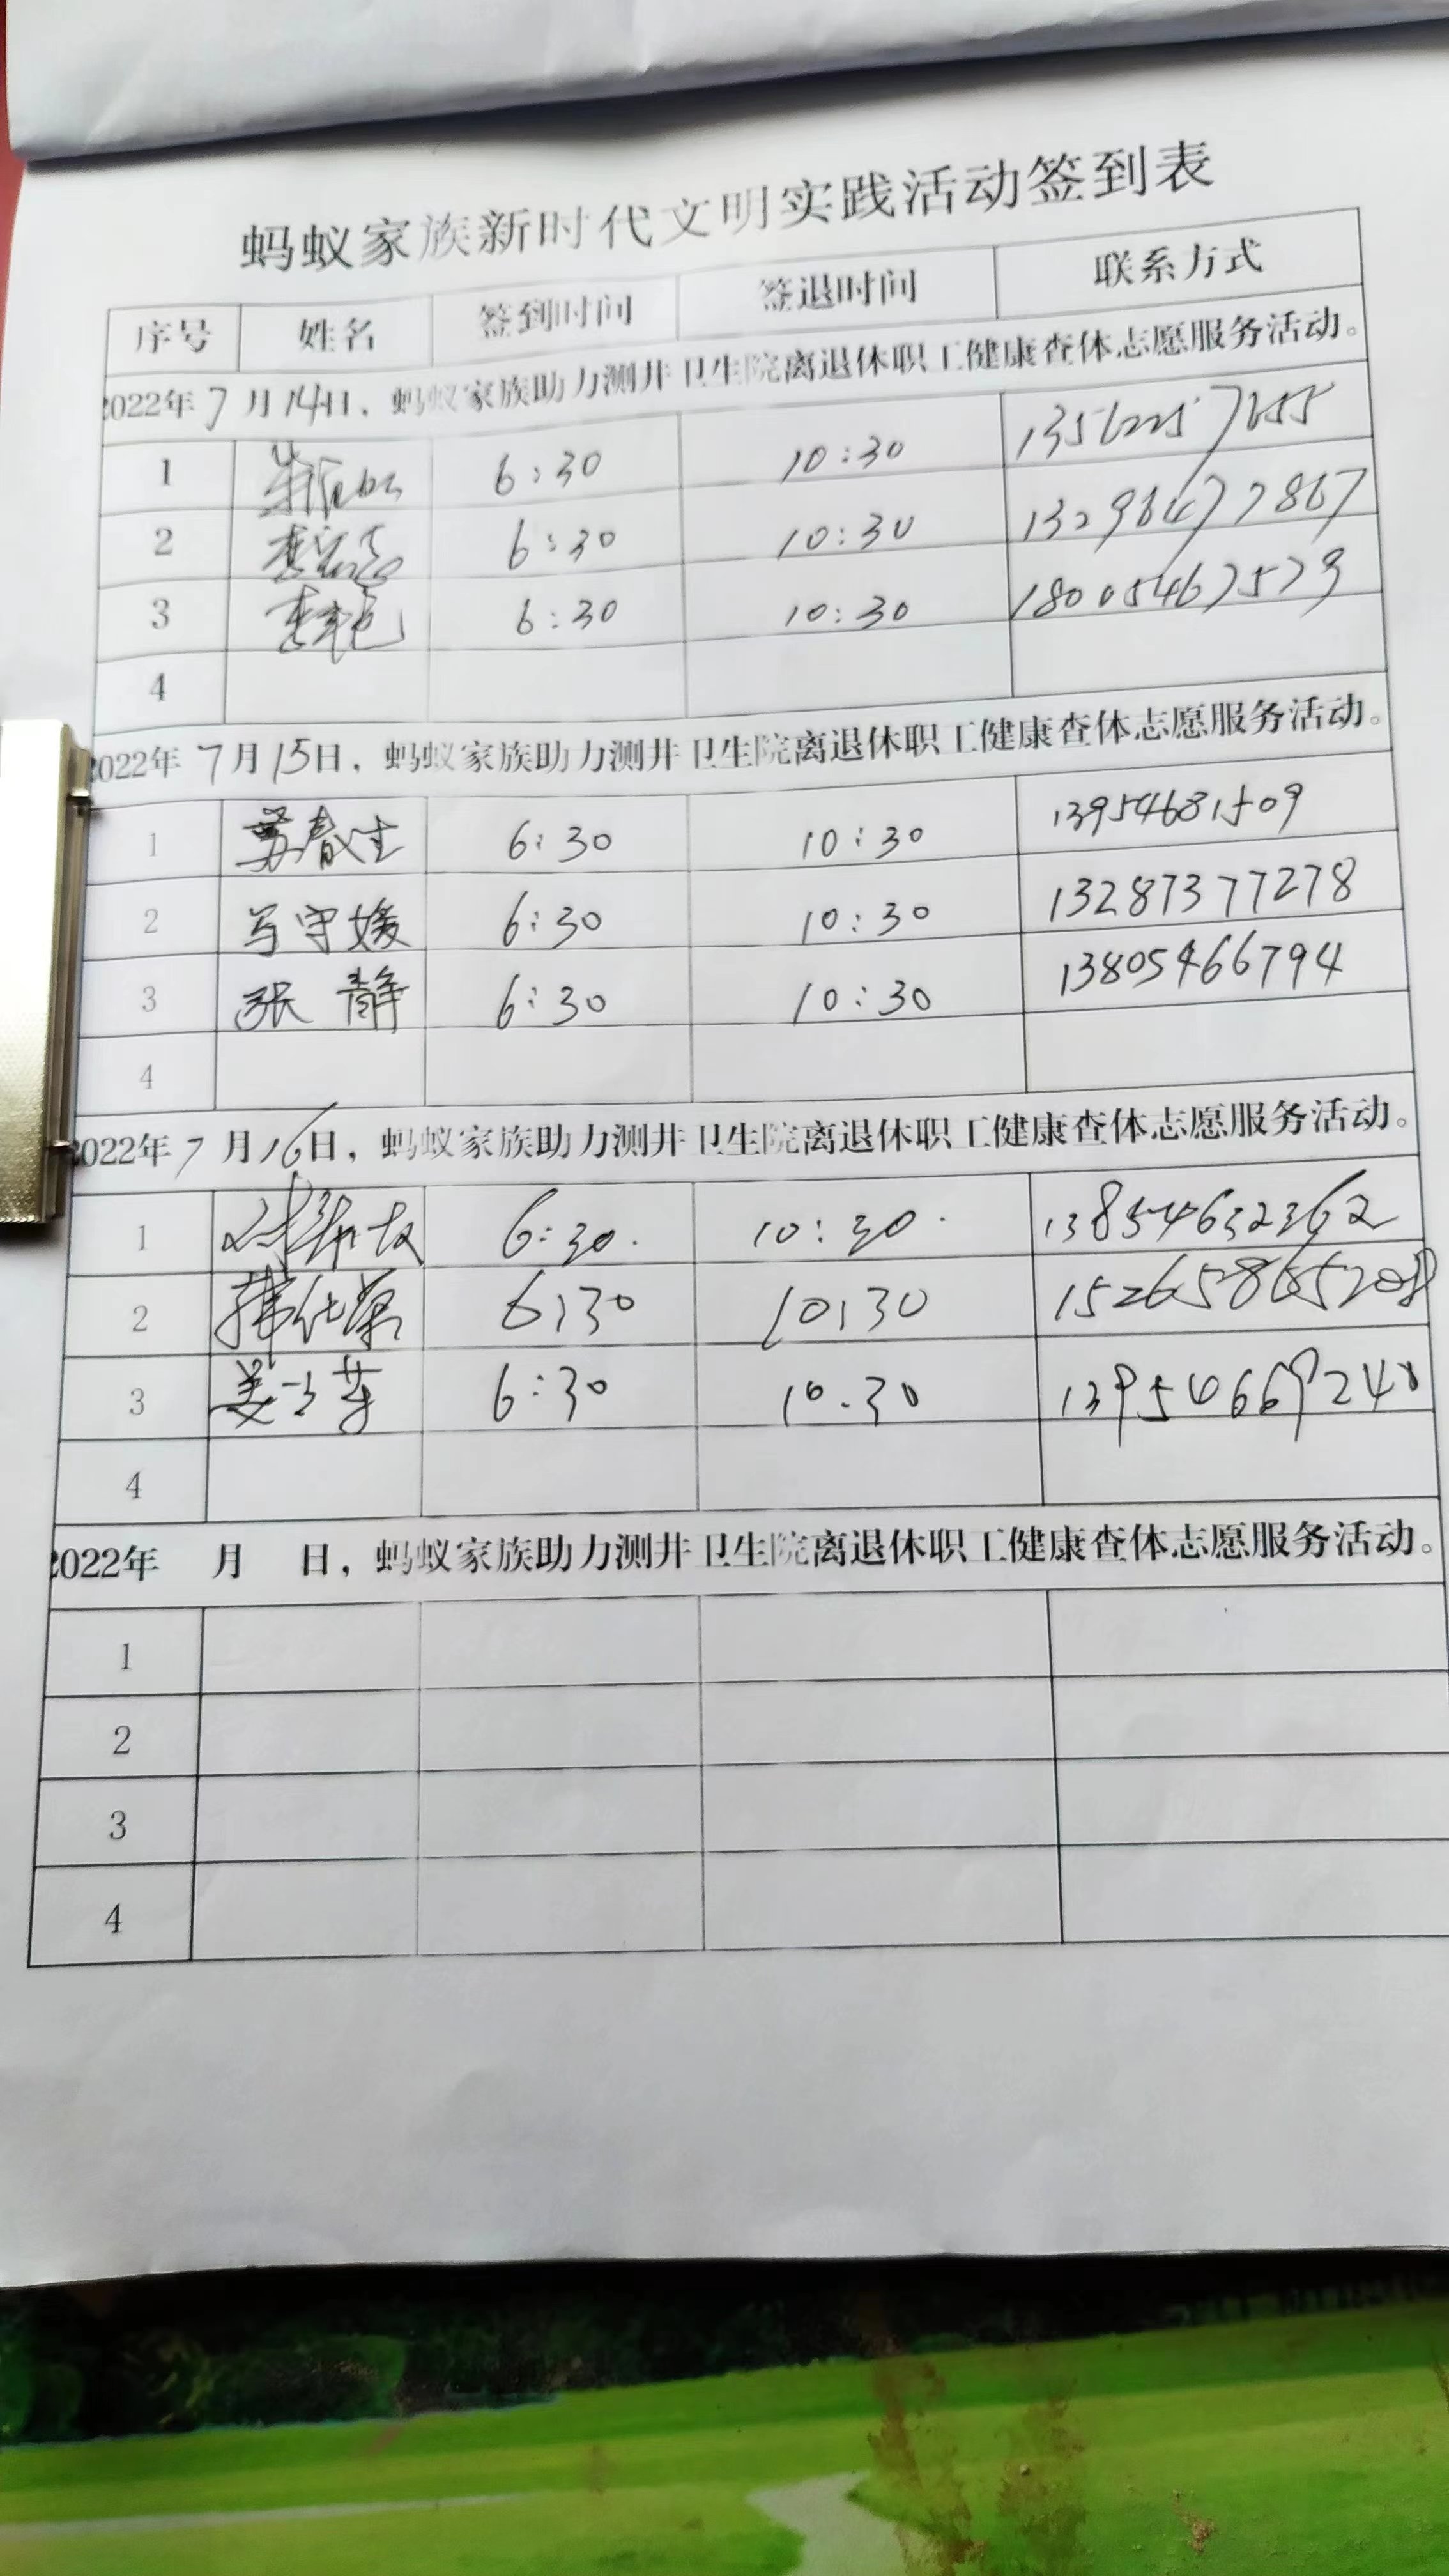 蚂蚁家族新时代文明实践活动签到表
序号 姓名 签到时间 签退时间 联系方式
2022年7月14日，蚂蚁家族助力测井卫生院离退休职工健康查体志愿服务活动。
1 6:30 10:30
2 6:30 10:30
3 6:30 10:30 18005467579
4
2022年7月15日，蚂蚁家族助力测井卫生院离退休职工健康查体志愿服务活动。
1 苏春生 6:30 10:30 13954681509
2 马守媛 6:30 10:30 13287377278
3 张静 6:30 10:30 13805466794
4
2022年7月16日，蚂蚁家族助力测井卫生院离退休职工健康查体志愿服务活动。
1 6:30. 10:30. 13854632362
2 6:30 10:30
3 6:30 10.30
4
2022年 月 日，蚂蚁家族助力测井卫生院离退休职工健康查体志愿服务活动。
1
2
3
4